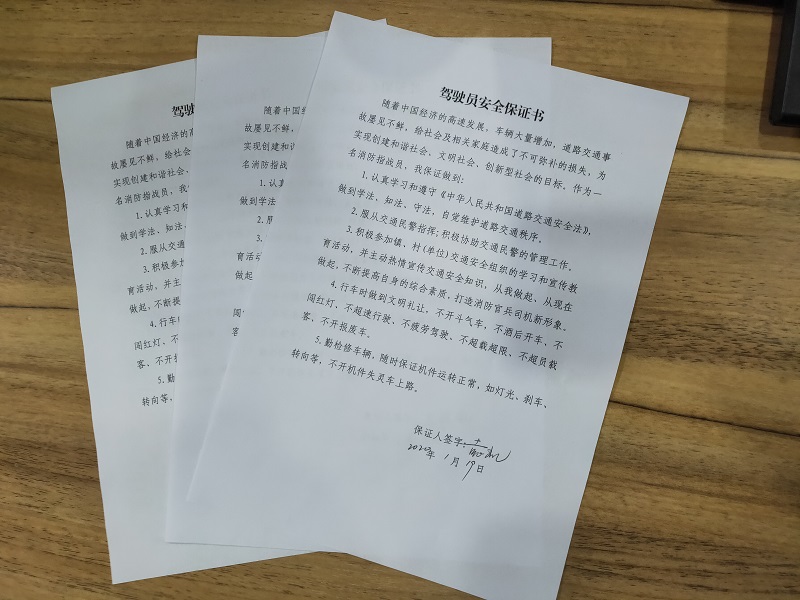 驾驶员安全保证书
随着中国经济的高速发展，车辆大量增加，道路交通事
故屡见不鲜，给社会及相关家庭造成了不可弥补的损失，为
实现创建和谐社会、文明社会、创新型社会的目标，作为一
名消防指战员，我保证做到：
1.认真学习和遵守《中华人民共和国道路交通安全法》，
做到学法、知法、守法，自觉维护道路交通秩序。
2.服从交通民警指挥；积极协助交通民警的管理工作。
3.积极参加镇、村(单位)交通安全组织的学习和宣传教
育活动，并主动热情宣传交通安全知识，从我做起，从现在
做起，不断提高自身的综合素质，打造消防官兵司机新形象。
4.行车时做到文明礼让，不开斗气车，不酒后开车、不
闯红灯、不超速行驶、不疲劳驾驶、不超载超限、不超员载
客、不开报废车。
5.勤检修车辆，随时保证机件运转正常，如灯光、刹车、
转向等，不开机件失灵车上路。
保证人签字：
2020年 1月19日
随着中国经
故屡见不鲜，
实现创建和谐
名消防指战
1.认真
做到学法
2.服
3.
育活动
做起
4
闯
客
驾驶
随着中国经济的高
故屡见不鲜，给社会
实现创建和谐社会、
名消防指战员，我
1.认真学习和
做到学法、知法、
2.服从交通
3.积极参
育活动，并主
做起，不断提
4.行车
闯红灯、不
客、不开报
5.勤
转向等，